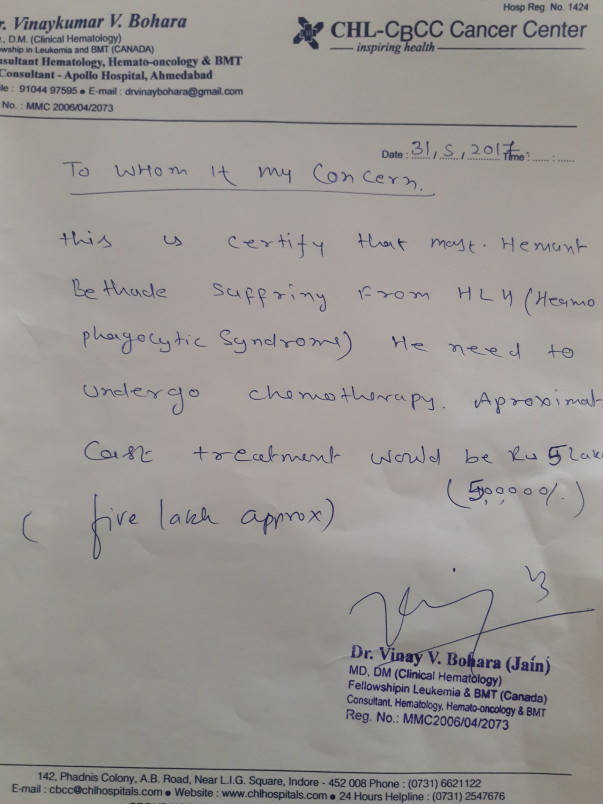 Hosp Reg. No. 1424
r. Vinaykumar V. Bohara
., D.M. (Clinical Hematology)
wship in Leukemia and BMT (CANADA)
nsultant Hematology, Hemato-oncology & BMT
Consultant - Apollo Hospital, Ahmedabad
le : 91044 97595 ● E-mail : drvinaybohara@gmail.com
No. : MMC 2006/04/2073
CHL-CBCC Cancer Center
inspiring health
Date : 31, 5, 2017 Time : ...... : ......
To Whom It my Concern.
this is certify that mast. Hemant
Bethade suffring From HLH (Heamo
phagocytic Syndrome) He need to
undergo chemotherapy. Aproximat
Cost treatment would be Rs 5 lak
(5,00,000/-)
( five lakh approx)
Dr. Vinay V. Bohara (Jain)
MD, DM (Clinical Hematology)
Fellowshipin Leukemia & BMT (Canada)
Consultant, Hematology, Hemato-oncology & BMT
Reg. No.: MMC2006/04/2073
142, Phadnis Colony, A.B. Road, Near L.I.G. Square, Indore - 452 008 Phone : (0731) 6621122
E-mail : cbcc@chlhospitals.com ● Website : www.chlhospitals.com ● 24 Hours Helpline : (0731) 2547676